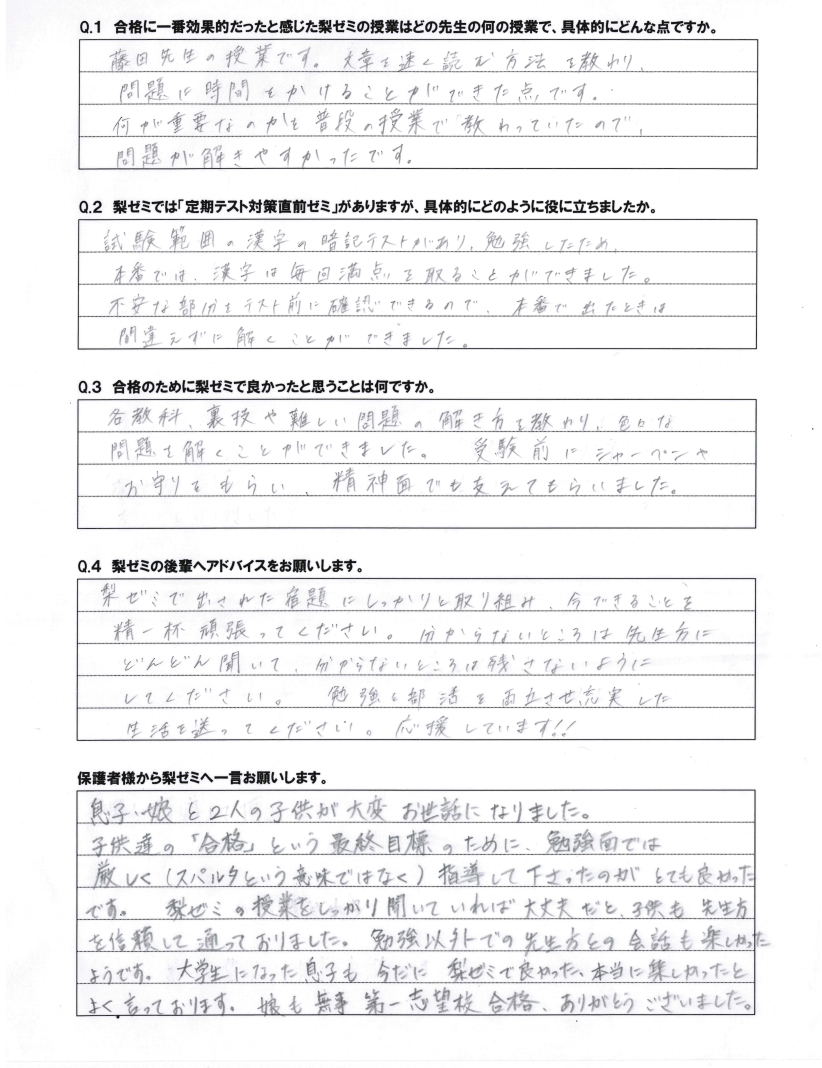 Q.1 合格に一番効果的だったと感じた梨ゼミの授業はどの先生の何の授業で、具体的にどんな点ですか。
藤田先生の授業です。文章を速く読む方法を教わり、
問題に時間をかけることができた点です。
何が重要なのかを普段の授業で教わっていたので、
問題が解きやすかったです。
Q.2 梨ゼミでは「定期テスト対策直前ゼミ」がありますが、具体的にどのように役に立ちましたか。
試験範囲の漢字の暗記テストがあり、勉強したため、
本番では、漢字は毎回満点を取ることができました。
不安な部分をテスト前に確認できるので、本番で出たときは
間違えずに解くことができました。
Q.3 合格のために梨ゼミで良かったと思うことは何ですか。
各教科、裏技や難しい問題の解き方を教わり、色々な
問題を解くことができました。受験前にシャーペンや
お守りをもらい、精神面でも支えてもらいました。
Q.4 梨ゼミの後輩へアドバイスをお願いします。
梨ゼミで出された宿題にしっかりと取り組み、今できることを
精一杯頑張ってください。分からないところは先生方に
どんどん聞いて、分からないところは残さないように
してください。勉強と部活を両立させ、充実した
生活を送ってください。応援しています!!
保護者様から梨ゼミへ一言お願いします。
息子・娘と2人の子供が大変お世話になりました。
子供達の「合格」という最終目標のために、勉強面では
厳しく(スパルタという意味ではなく)指導して下さったのがとても良かった
です。梨ゼミの授業をしっかり聞いていれば大丈夫だと、子供も先生方
を信頼して通っておりました。勉強以外での先生方との会話も楽しかった
ようです。大学生になった息子も今だに梨ゼミで良かった、本当に楽しかったと
よく言っております。娘も無事第一志望校合格、ありがとうございました。